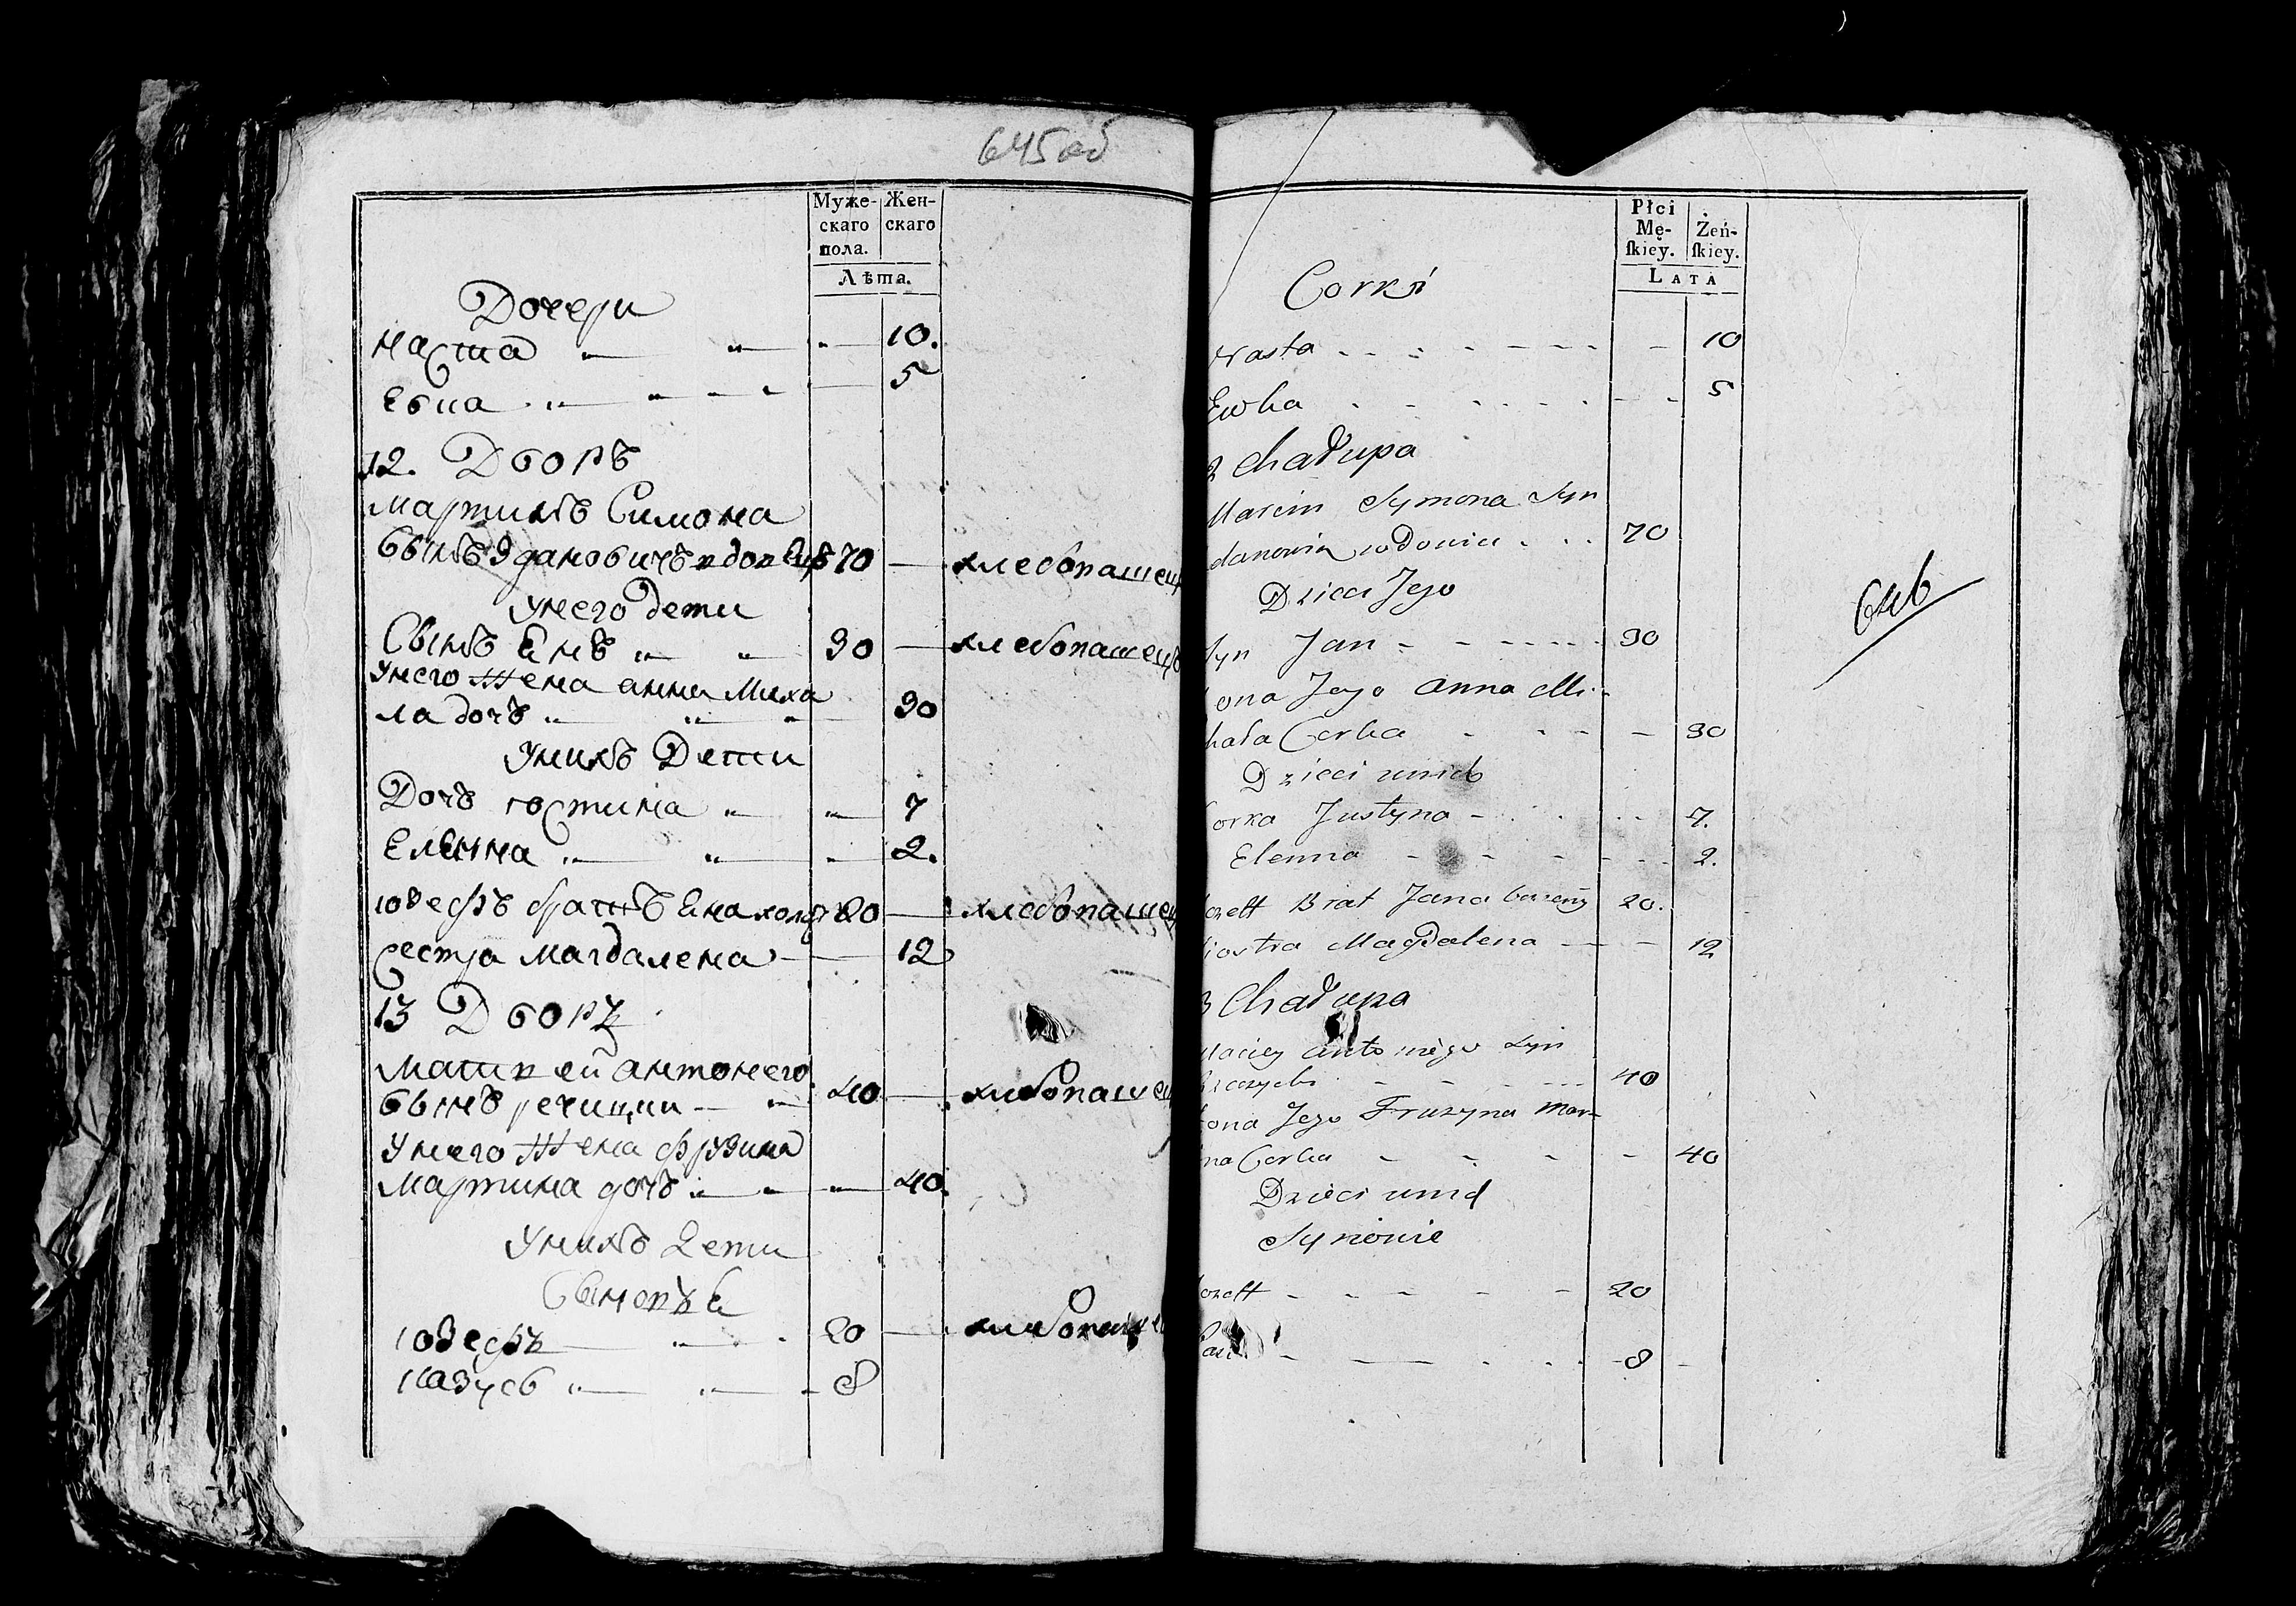 645 об
Муже- Жен-
скаго скаго
пола.
Лѣта.
Дочери
Наста 10.
Евка 5
12. Дворъ
Мартинъ Симона
Сынъ Здановичъ вдовецъ 70 хлебопашец
У него дети
Сынъ Янъ 30 хлебопашецъ
У него жена анна Миха
ла дочь 30
У нихъ Дети
Дочь юстина 7
Еленна 2.
юзефъ братъ Яна холос 20 хлебопашец
сестра магдалена 12
13 Дворъ
Матвей антонего
сынъ речицки 40 хлебопашец
У него жена Фрузина
Мартина дочь 40.
У нихъ дети
Сыновья
юзефъ 20 хлебопаше
8
Płci
Mę- Żeń-
ſkiey. ſkiey.
LATA
Corki
Nasta 10
Ewka 5
2 Chałupa
Marcin Symona Syn
danowicz wdowiec 70
Dzieci Jego
Syn Jan 30
ona Jego Anna Mi-
hała Corka 30
Dzieci unich
orka Justyna 7.
Elenna 2.
ozeff Brat Jana 20.
iostra Magdalena 12
3 Chałupa
Maciey Antoniego Syn
40
ona Jego Fruzyna Mar-
na Corka 40
Dzieci unich
Synowie
ozeff 20
8
646